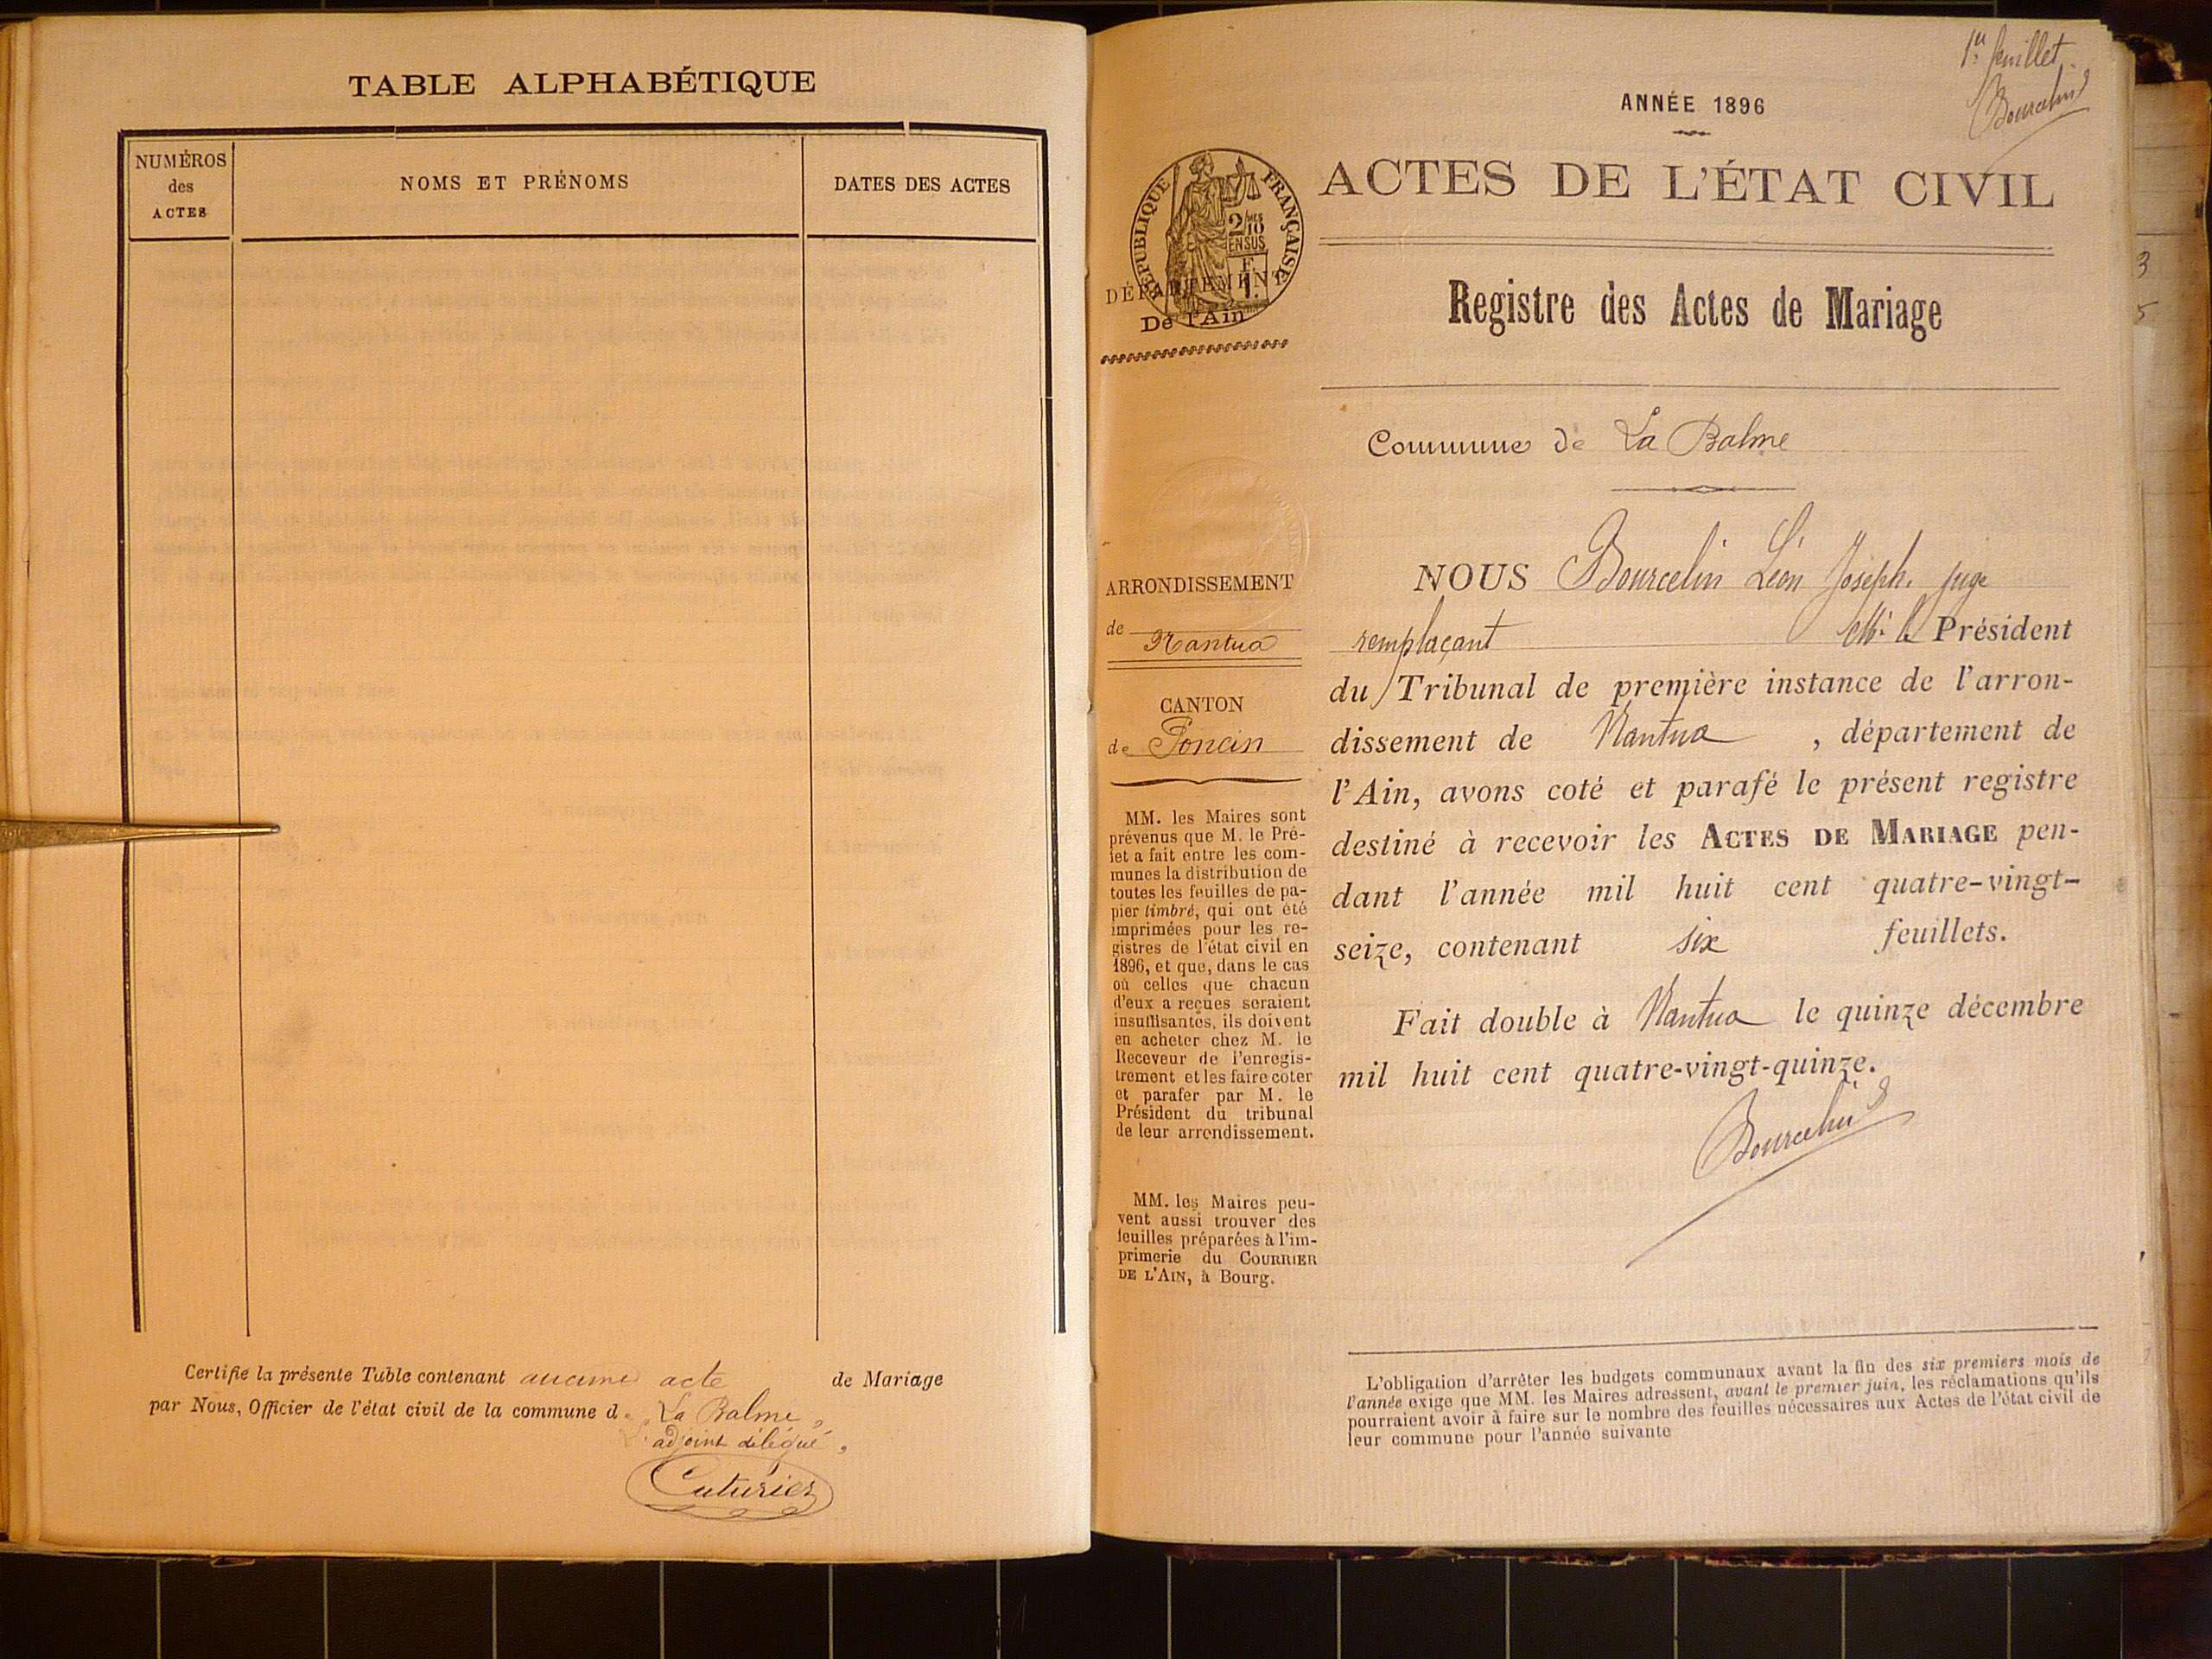 TABLE ALPHABÉTIQUE
NUMÉROS
des
ACTES
NOMS ET PRÉNOMS
DATES DES ACTES
Certifié la présente Table contenant aucune acte de Mariage
par Nous, Officier de l'état civil de la commune de La Balme,
L'adjoint délégué,
Cuturier
1er feuillet
Bourcelin
ANNÉE 1896
ACTES DE L'ÉTAT CIVIL
RÉPUBLIQUE FRANÇAISE
2/10
EN SUS
DÉPARTEMENT
De l'Ain
Registre des Actes de Mariage
Commune de La Balme
ARRONDISSEMENT
de Nantua
CANTON
de Poncin
MM. les Maires sont
prévenus que M. le Pré-
fet a fait entre les com-
munes la distribution de
toutes les feuilles de pa-
pier timbré, qui ont été
imprimées pour les re-
gistres de l'état civil en
1896, et que, dans le cas
où celles que chacun
d'eux a reçues seraient
insuffisantes, ils doivent
en acheter chez M. le
Receveur de l'enregis-
trement et les faire coter
et parafer par M. le
Président du tribunal
de leur arrondissement.
MM. les Maires peu-
vent aussi trouver des
feuilles préparées à l'im-
primerie du COURRIER
DE L'AIN, à Bourg.
NOUS Bourcelin Léon Joseph. juge
remplaçant Mr. le Président
du Tribunal de première instance de l'arron-
dissement de Nantua, département de
l'Ain, avons coté et parafé le présent registre
destiné à recevoir les ACTES DE MARIAGE pen-
dant l'année mil huit cent quatre-vingt-
seize, contenant six feuillets.
Fait double à Nantua le quinze décembre
mil huit cent quatre-vingt-quinze.
Bourcelin
L'obligation d'arrêter les budgets communaux avant la fin des six premiers mois de
l'année exige que MM. les Maires adressent, avant le premier juin, les réclamations qu'ils
pourraient avoir à faire sur le nombre des feuilles nécessaires aux Actes de l'état civil de
leur commune pour l'année suivante
3
5